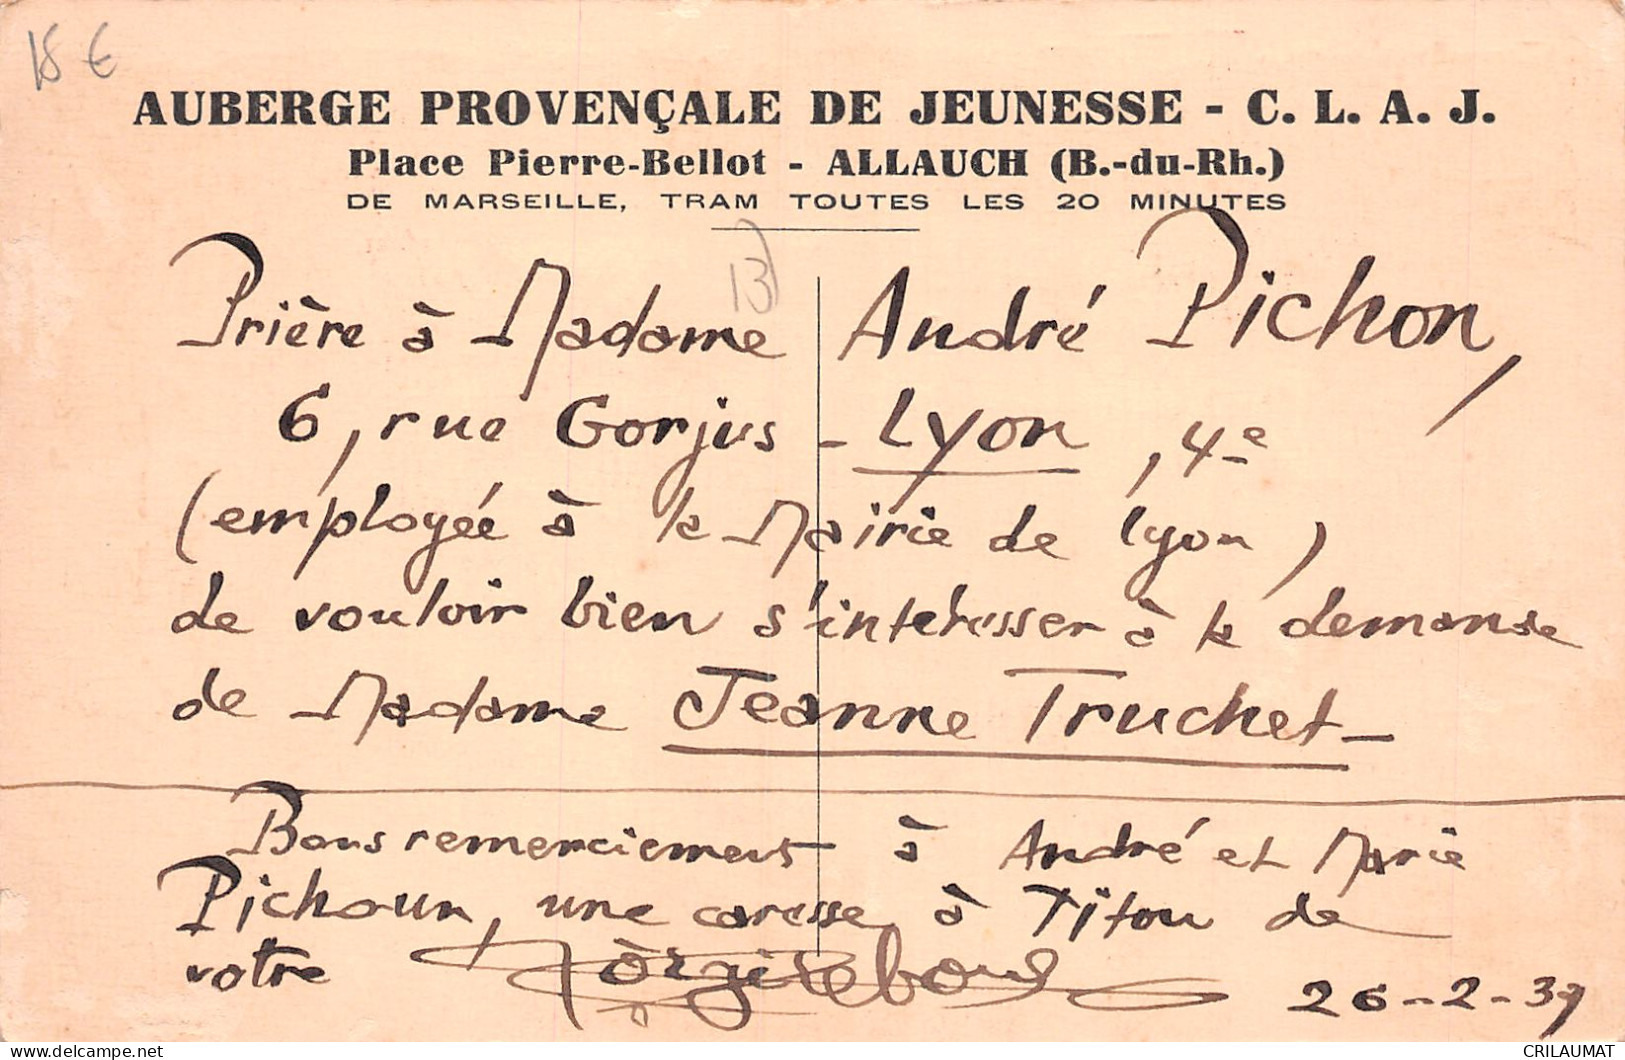 15 €
AUBERGE PROVENÇALE DE JEUNESSE - C. L. A. J.
Place Pierre-Bellot - ALLAUCH (B.-du-Rh.)
DE MARSEILLE, TRAM TOUTES LES 20 MINUTES
13
Prière à Madame André Pichon,
6, rue Gorjus - Lyon, 4e
(employée à la Mairie de Lyon)
de vouloir bien s'intéresser à la demande
de Madame Jeanne Truchet -
Bons remerciements à André et Marie
Pichoun, une caresse à Titou de
votre
26-2-37
CRILAUMAT